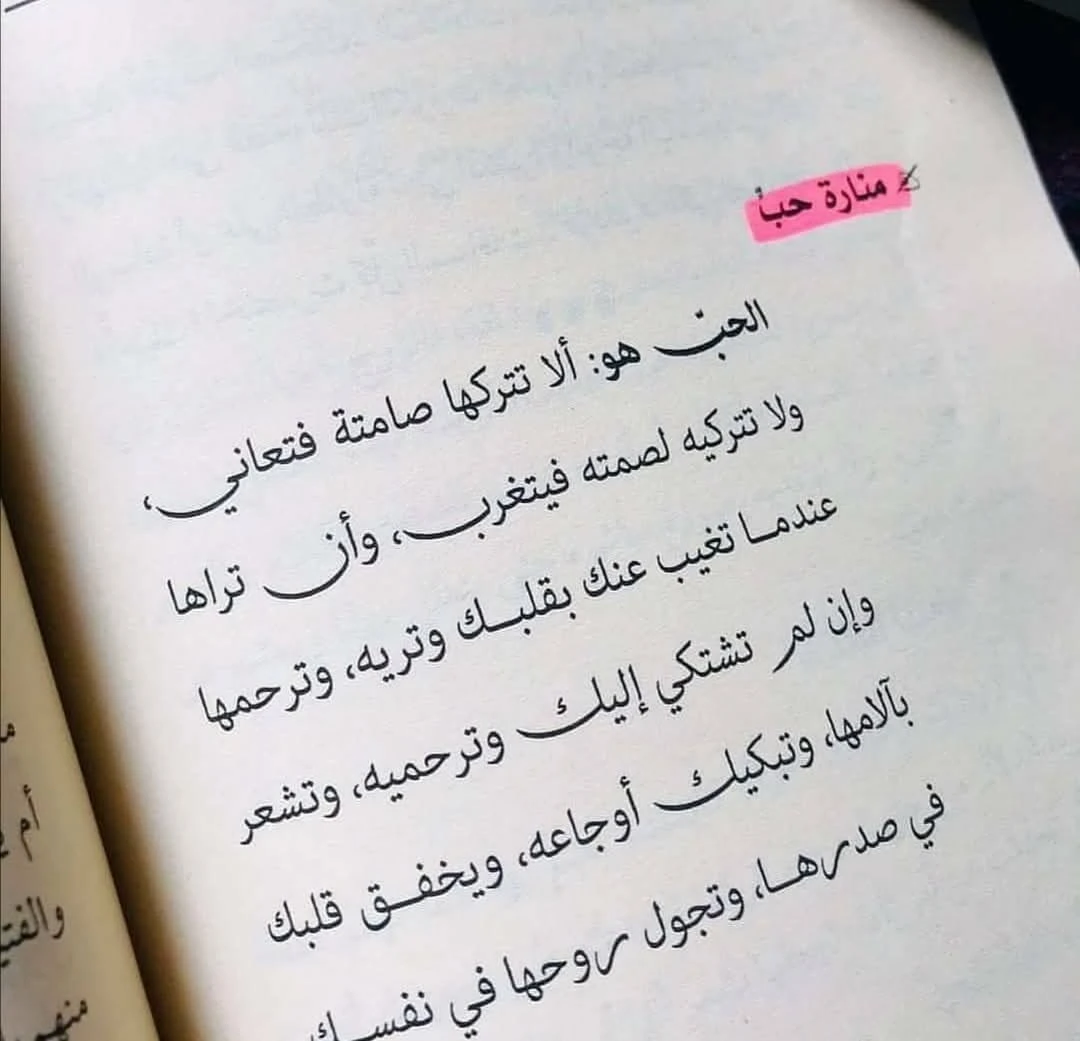 منارة حب
الحبّ هو: ألا تتركها صامتة فتعاني،
ولا تتركيه لصمته فيتغرب، وأن تراها
عندما تغيب عنك بقلبك وتريه، وترحمها
وإن لم تشتكي إليك وترحميه، وتشعر
بآلامها، وتبكيك أوجاعه، ويخفق قلبك
في صدرها، وتجول روحها في نفسك
أم
منهم